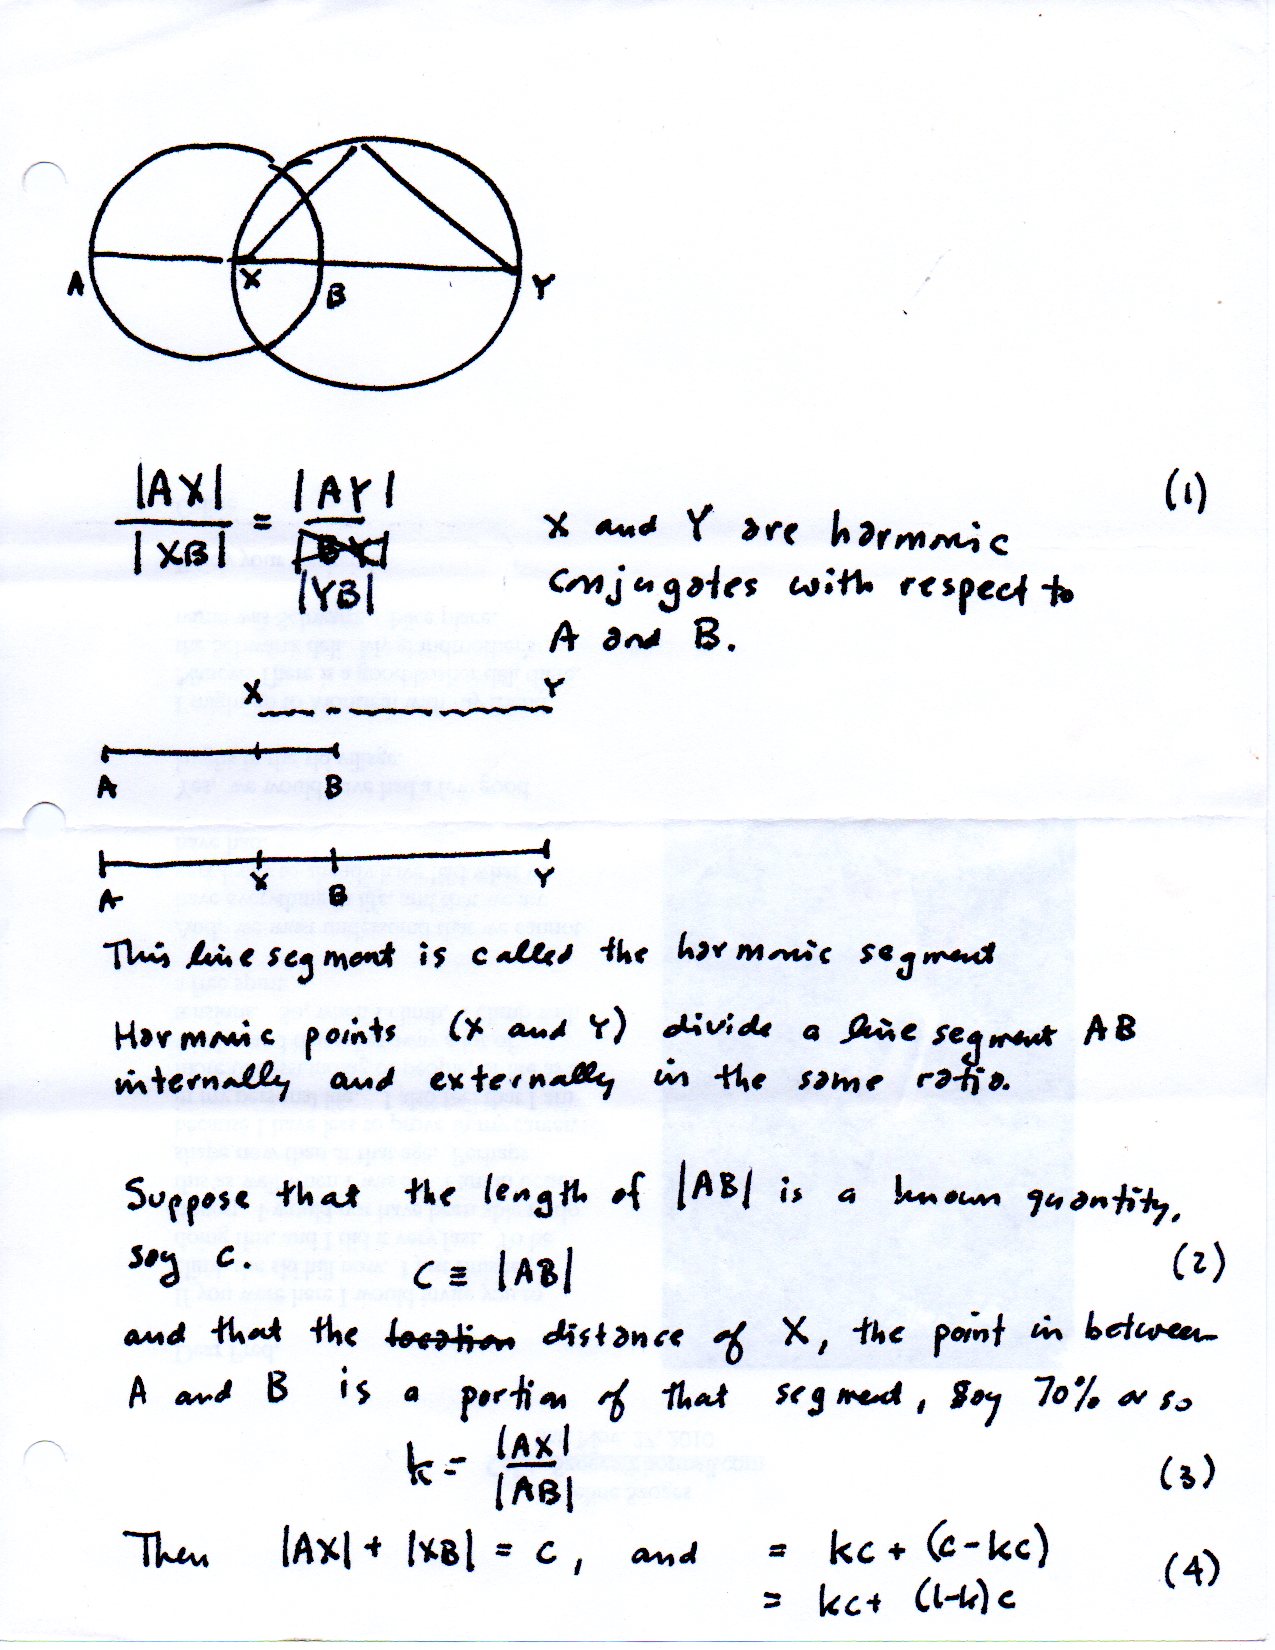 A X B Y
|AX| / |XB| = |AY| / |YB| (1)
X and Y are harmonic
conjugates with respect to
A and B.
X Y
A B
A X B Y
This line segment is called the harmonic segment
Harmonic points (X and Y) divide a line segment AB
internally and externally in the same ratio.
Suppose that the length of |AB| is a known quantity,
say c.
C ≡ |AB| (2)
and that the location distance of X, the point in between
A and B is a portion of that segment, say 70% or so
k = |AX| / |AB| (3)
Then |AX| + |XB| = c, and = kc + (c-kc)
= kc + (1-k)c (4)